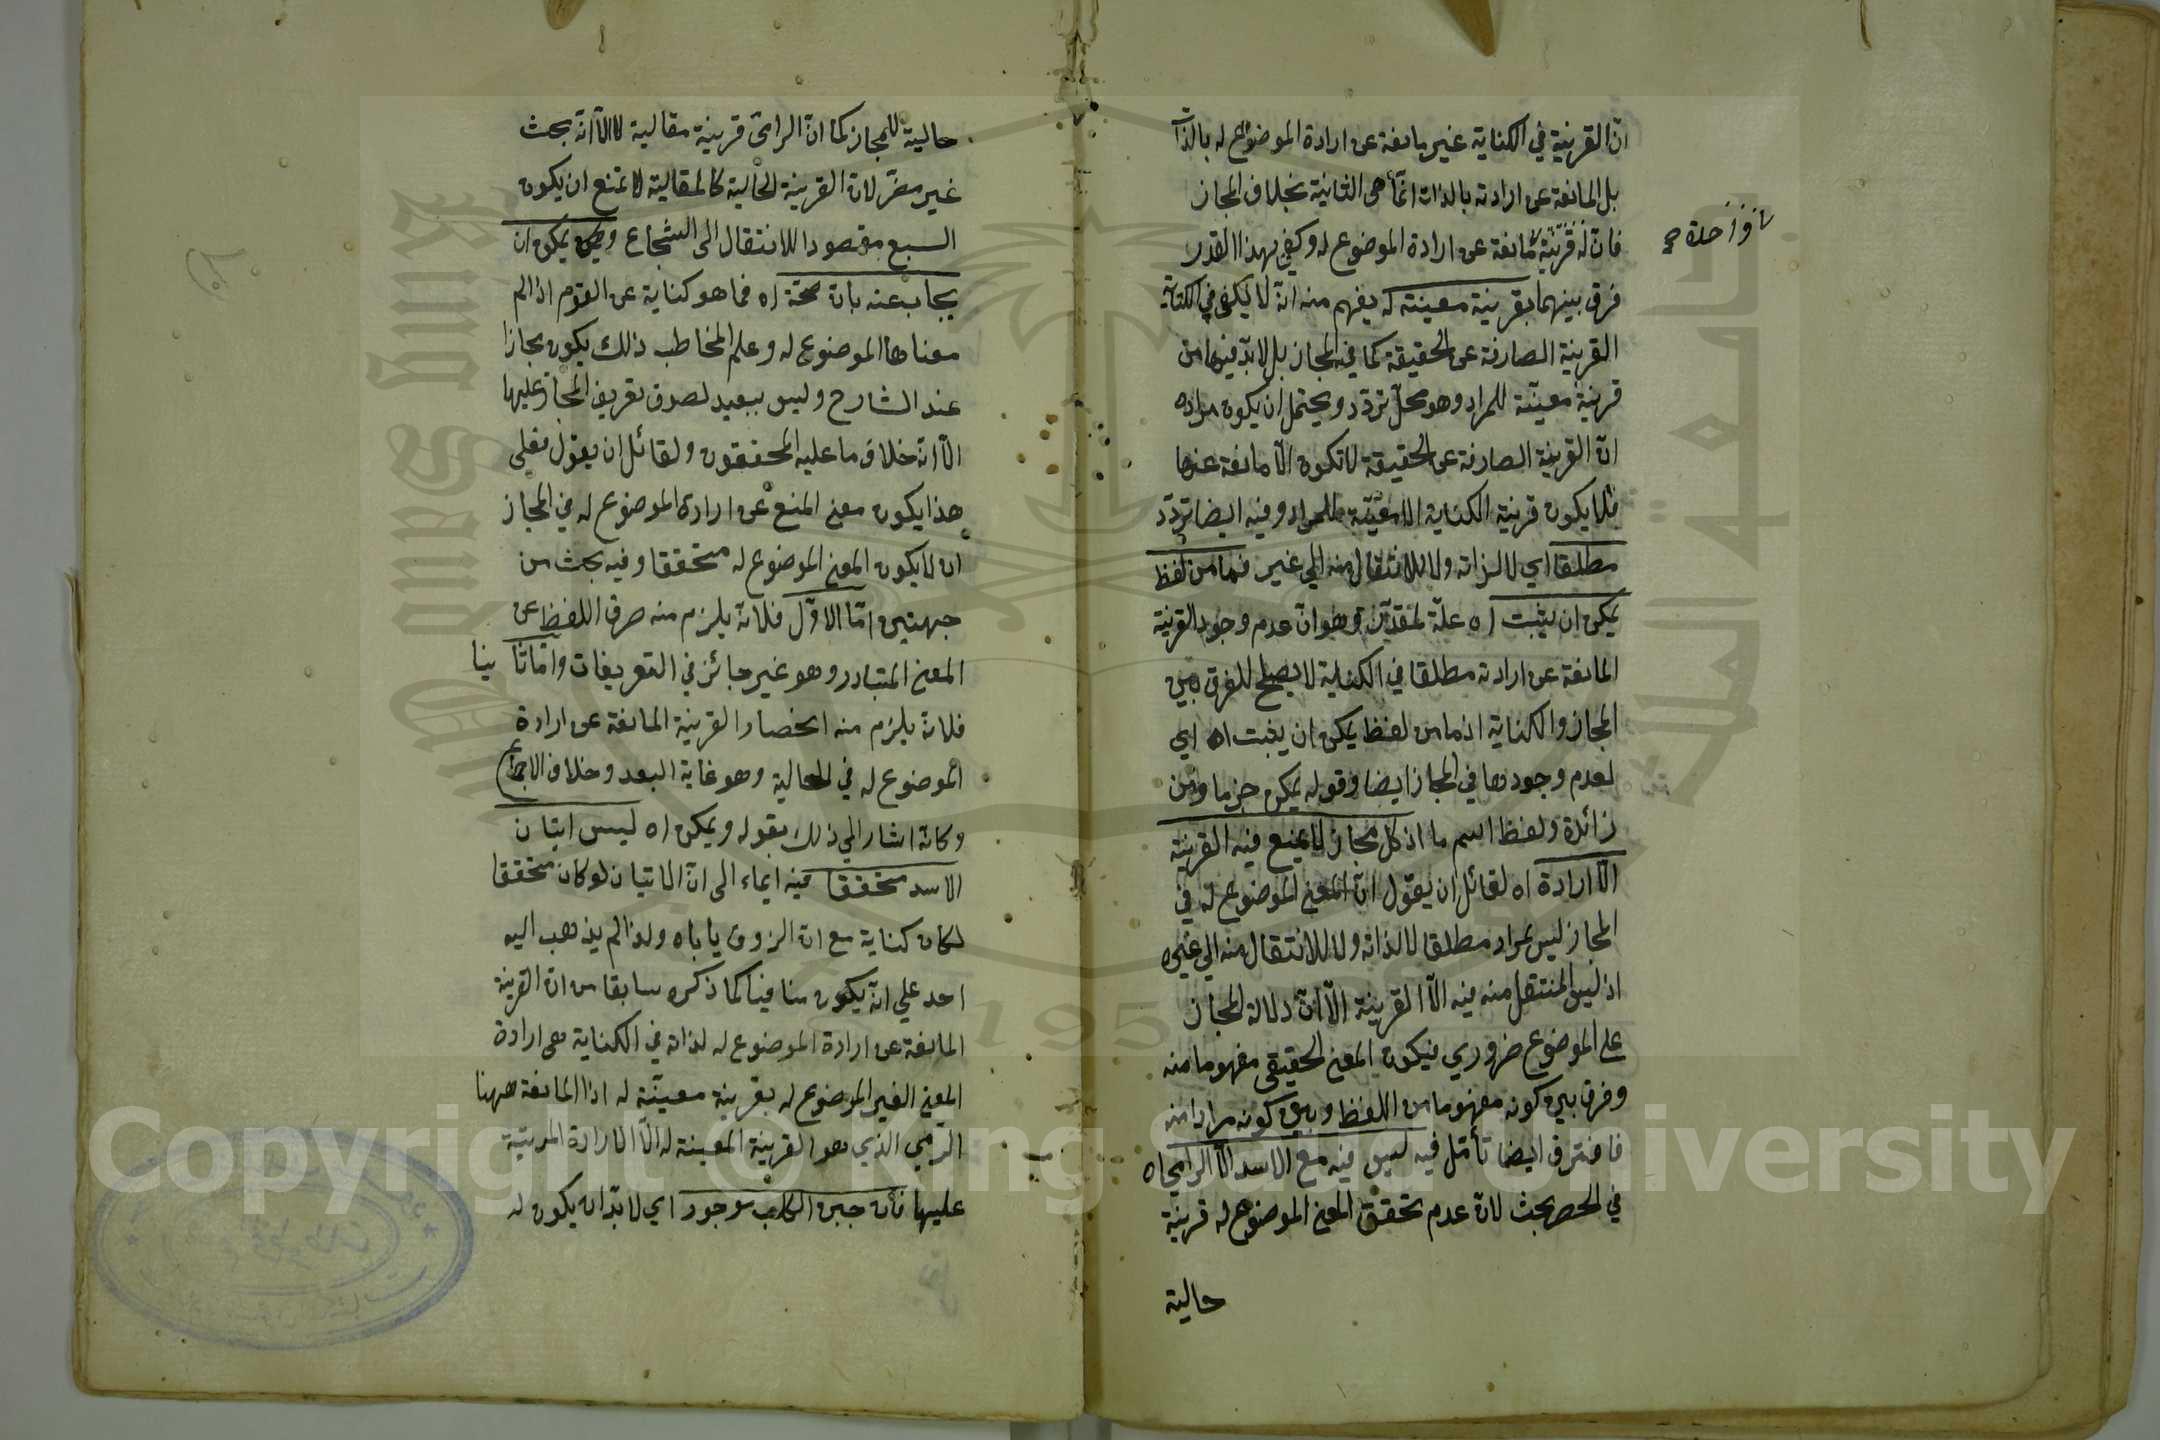 انّ القرينة في الكناية غير مانعة عن ارادة الموضوع له بالذات
بل المانعة عن ارادته بالذات انما هي الثانية بخلاف المجاز
فان له قرينة مانعة عن ارادة الموضوع له وكفى بهذا القدر
واحدة صح
فرق بينهما بقرينة معينة له يفهم منه انه لا يكفي في الكناية
القرينة الصارفة عن الحقيقة كما في المجاز بل لابد فيها من
قرينة معينة للمراد وهو محلّ تردّد ويحتمل ان يكون مراده
انّ القرينة الصارفة عن الحقيقة لا تكون الّا مانعة عنها
فلا يكون قرينة الكناية الا معينة للمراد وفيه ايضا تردّد
مطلقا اي لا لذاته ولا للانتقال منه الى غير فما من لفظ
يمكن ان يثبت اه علّة لمقدّر وهو انّ عدم وجود القرينة
المانعة عن ارادته مطلقا في الكناية لا يصلح للفرق بين
المجاز والكناية اذ ما من لفظ يمكن ان يثبت اه اي
لعدم وجودها في المجاز ايضا وقوله يمكن جزما ومن
زائدة ولفظ اسم ما اذ كل مجاز لا يمنع فيه القرينة
الّا ارادة اه لقائل ان يقول انّ المعنى الموضوع له في
المجاز ليس بمراد مطلقا لا لذاته ولا للانتقال منه الى غيره
اذ ليس المنتقل منه فيه الّا القرينة الّا انّ دلالة المجاز
على الموضوع ضروري فيكون المعنى الحقيقي مفهوما منه
وفرق بين كونه مفهوما من اللفظ وبين كونه مرادا منه
فافترق ايضا تأمّل فيه ليس فيه مع الاسد الّا الرامي اه
في الحصر بحث لان عدم تحقق المعنى الموضوع له قرينة
حالية
حالية للمجاز كما انّ الرامي قرينة مقالية له الّا انّه بحث
غير مضرّ لان القرينة الحالية كالمقالية لا تمنع ان يكون
السبع مقصودا للانتقال الى الشجاع ويمكن ان
يجاب عنه بان صحة اه فما هو كناية عن القوم اذا لم
معناها الموضوع له وعلم المخاطب ذلك يكون مجازا
عند الشارح وليس ببعيد لصدق تعريف المجاز عليها
الّا انه خلاف ما عليه المحققون ولقائل ان يقول فعلى
هذا يكون معنى المنع عن ارادة الموضوع له في المجاز
ان لا يكون المعنى الموضوع له متحققا وفيه بحث من
جهتين امّا الاوّل فلانه يلزم منه صرف اللفظ عن
المعنى المتبادر وهو غير جائز في التعريفات وامّا ثانيا
فلانه يلزم منه انحصار القرينة المانعة عن ارادة
الموضوع له في الحالية وهو غاية البعد وخلاف الاجماع
وكانه اشار الى ذلك بقوله ويمكن اه ليس اتيان
الاسد متحققا فيه ايماء الى انّ الاتيان لو كان متحققا
لكان كناية مع ان الذوق ياباه ولذا لم يذهب اليه
احد على انّه يكون منافيا كما ذكره سابقا من انّ القرينة
المانعة عن ارادة الموضوع له لذاته في الكناية هي ارادة
المعنى الغير الموضوع له بقرينة معيّنة له اذا المانعة ههنا
الرّمي الذي هو القرينة المعينة له الّا الارادة المرتبة
عليها فان جبن الكلب موجود اي لا بدّ ان يكون له
Copyright © King Saud University
1957